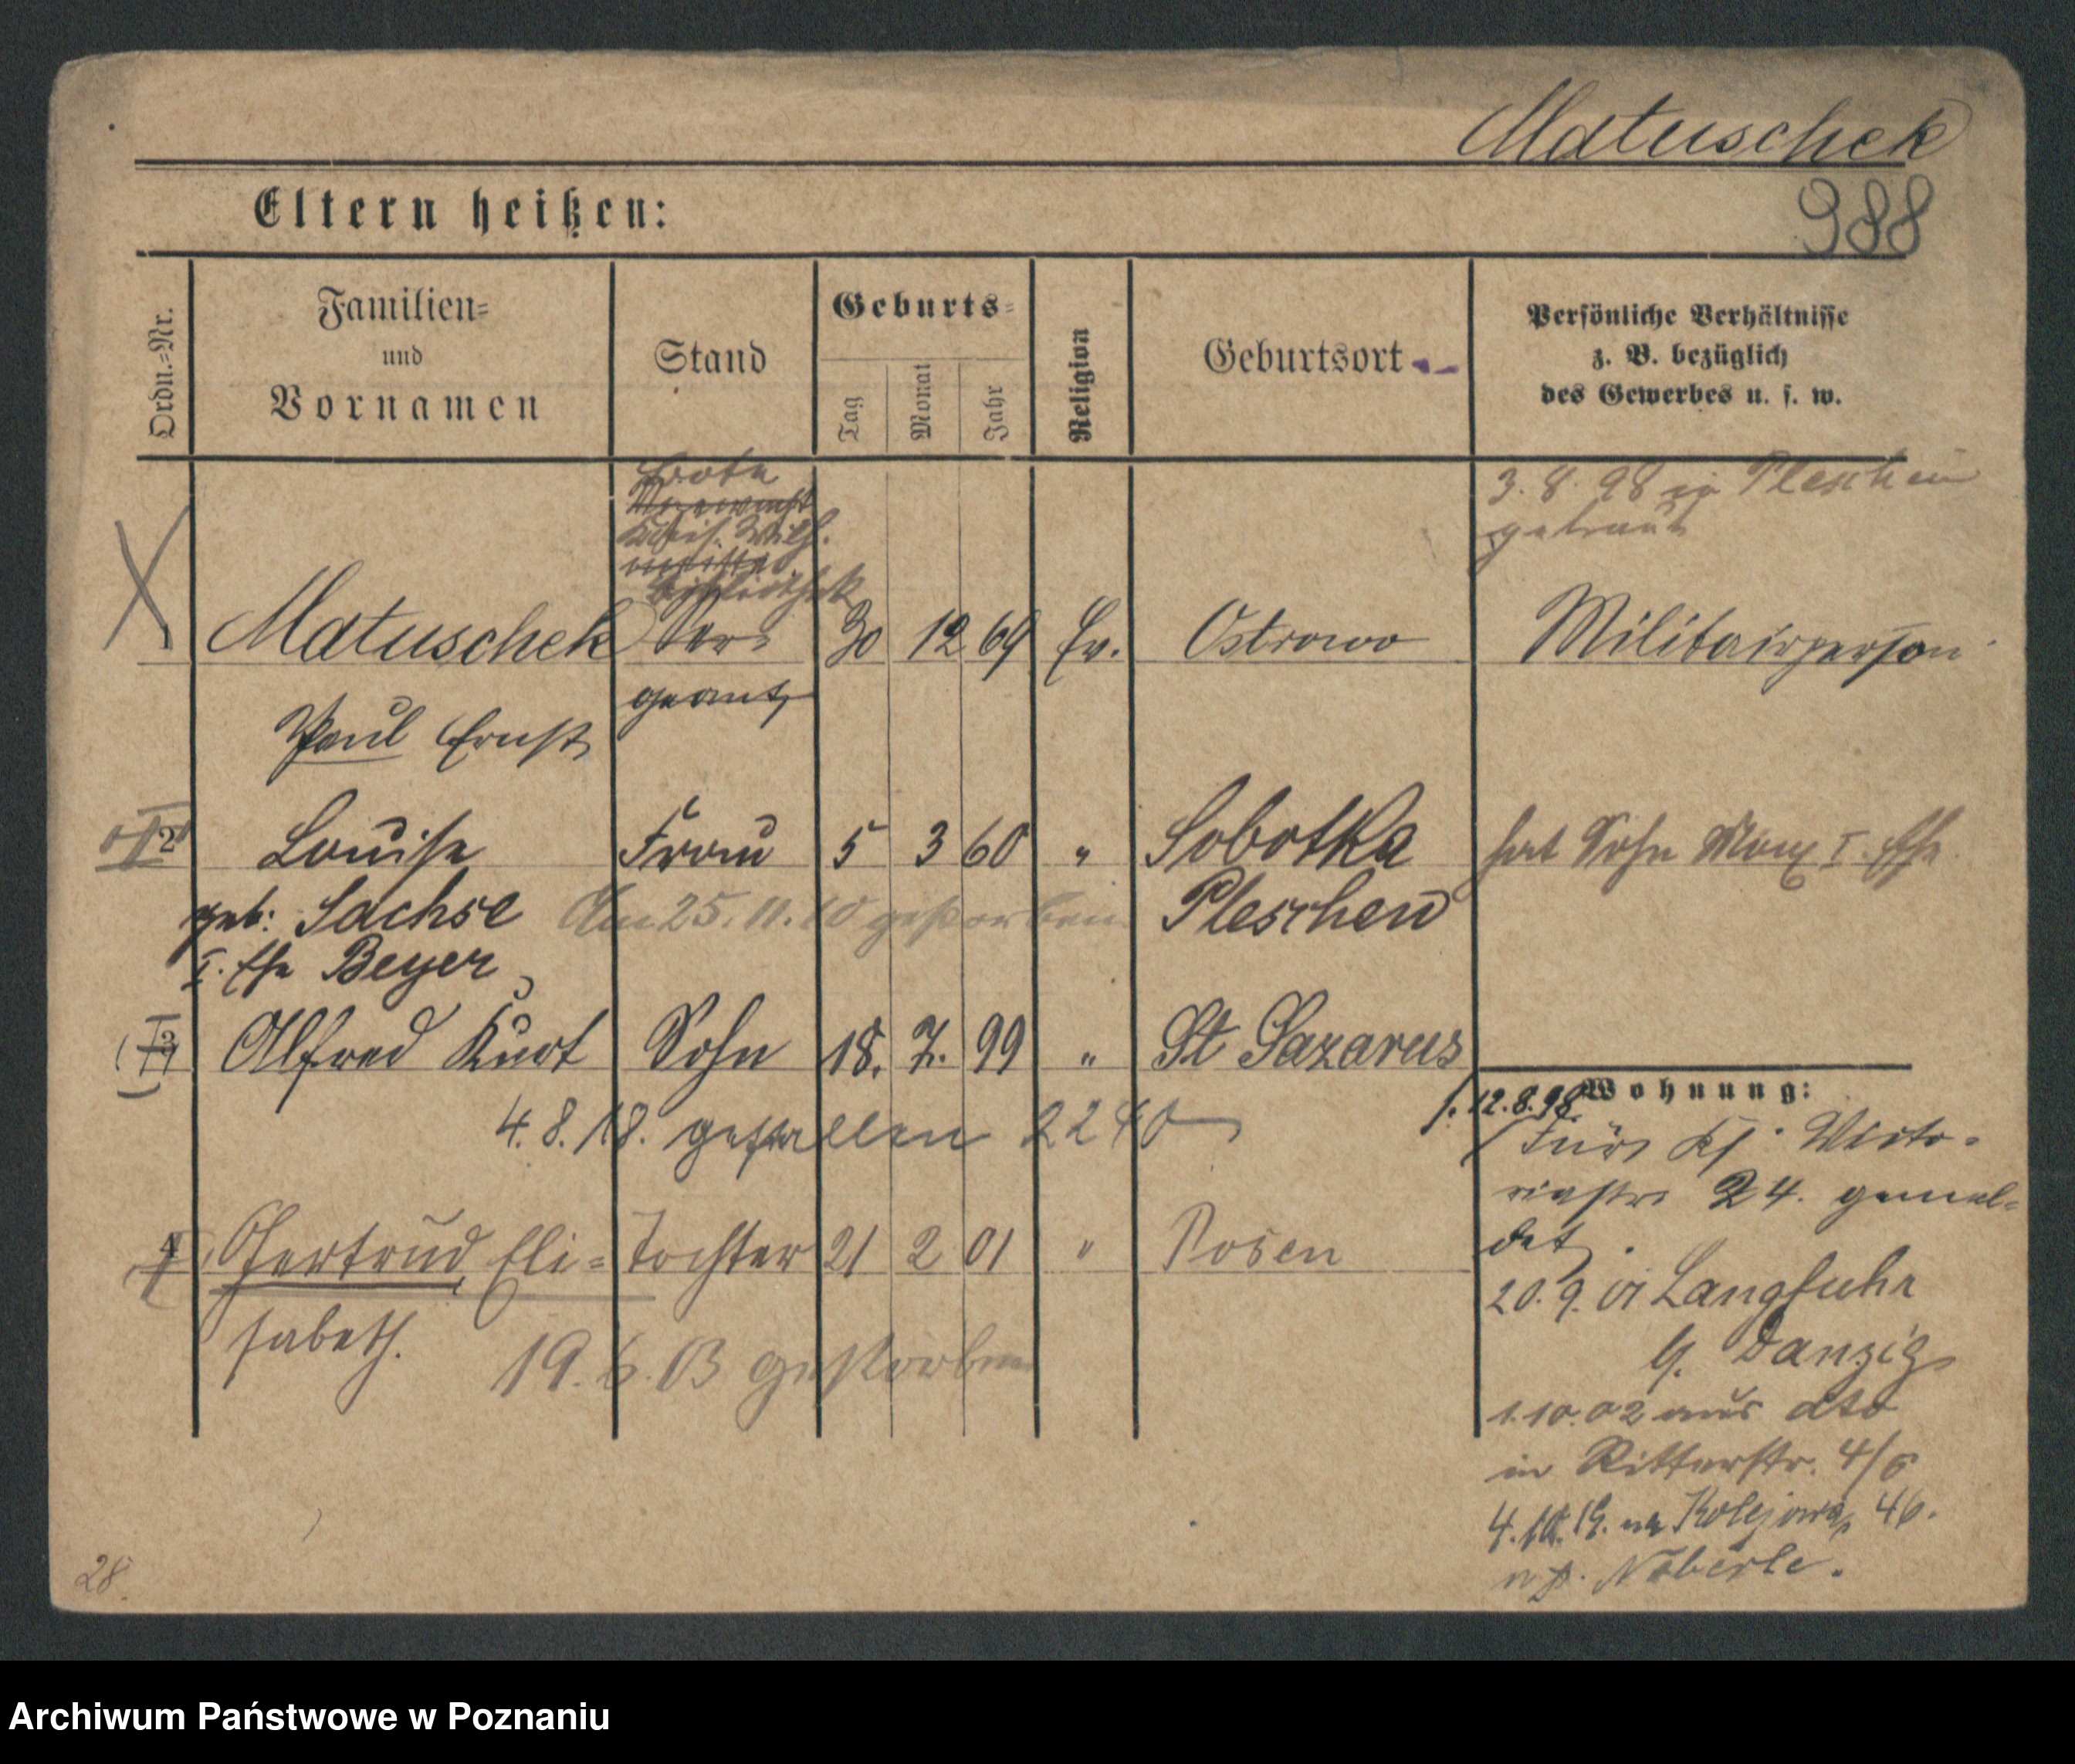 Matuschek
988
Eltern heißen:
Ordn.=Nr.
Familien=
und
Vornamen
Stand
Geburts=
Tag
Monat
Jahr
Religion
Geburtsort
Persönliche Verhältnisse
z. B. bezüglich
des Gewerbes u. s. w.
3. 8. 98 in Pleschen
getraut
Bote
Kais. Wilh.
bibliothek
Matuschek Ser= 30 12 69 Ev. Ostrowo Militairperson
geant
Paul Ernst
2 Louise Frau 5 3 60 " Sobotka hat Sohn Max I. Ehe
geb: Sachse Am 25. 11. 10 gestorben Pleschen
I. Ehe Beyer
3 Alfred Kurt Sohn 18. 7. 99 " St Lazarus
4. 8. 18. gefallen 2240
Wohnung:
12.8.98
Victo-
riastr 24. gemel=
det.
4 Gertrud, Eli= Tochter 21 2 01 " Posen
sabeth.
19. 6. 03 gestorben
20. 9. 01 Langfuhr
b. Danzig
1. 10. 02 aus dto
in Ritterstr. 4/6
4. 10. 19. na Kolejowa 46.
28.
Archiwum Państwowe w Poznaniu